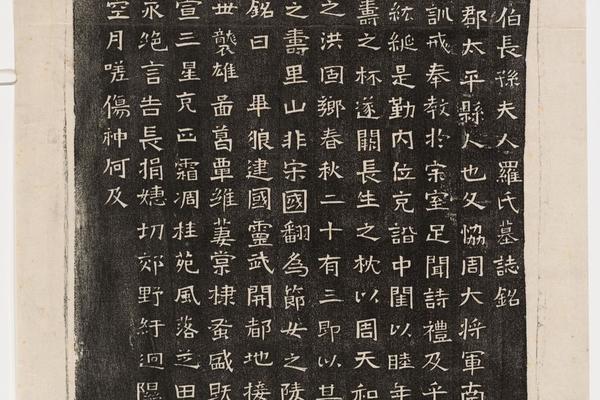 伯長孫夫人羅氏墓誌銘
郡太平縣人也父恊周大将軍南
訓戒奉教扵宗室足聞詩禮及乎
紘綖是勤内位克諧中閨以睦年
壽之杯遂闕長生之枕以周天和
之洪固鄉春秋二十有三即以其
之壽里山非宋國翻為節女之陵
銘曰 畢狼建國靈武開都地接
丗襲雄啚葛覃維萋棠棣蚕盛既
宣三星克正霜凋桂苑風落芝田
永絶言告長捐切郊野紆迴隰
空月嗟傷神何及